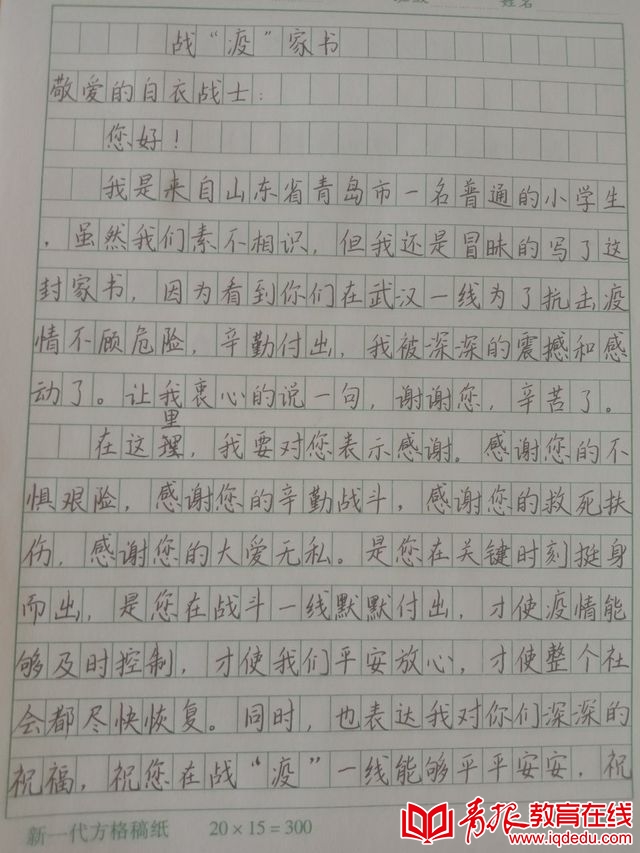 姓名
战“疫”家书
敬爱的白衣战士：
您好！
我是来自山东省青岛市一名普通的小学生
，虽然我们素不相识，但我还是冒昧的写了这
封家书，因为看到你们在武汉一线为了抗击疫
情不顾危险，辛勤付出，我被深深的震撼和感
动了。让我衷心的说一句，谢谢您，辛苦了。
里
在这理，我要对您表示感谢。感谢您的不
惧艰险，感谢您的辛勤战斗，感谢您的救死扶
伤，感谢您的大爱无私。是您在关键时刻挺身
而出，是您在战斗一线默默付出，才使疫情能
够及时控制，才使我们平安放心，才使整个社
会都尽快恢复。同时，也表达我对你们深深的
祝福，祝您在战“疫”一线能够平平安安，祝
新一代方格稿纸 20×15=300
青报教育在线
www.iqdedu.com